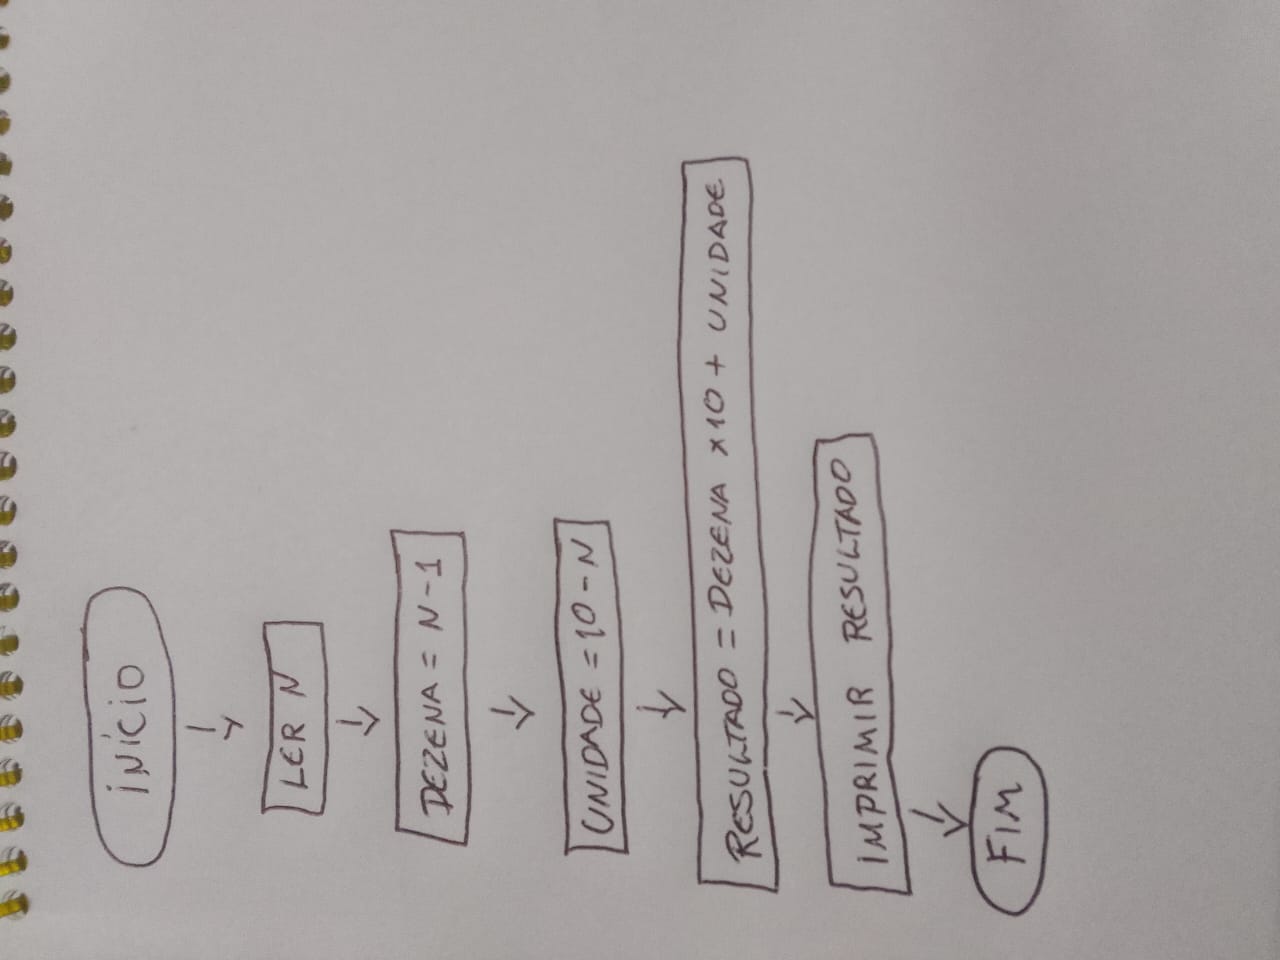 INÍCIO
LER N
DEZENA = N - 1
UNIDADE = 10 - N
RESULTADO = DEZENA x10 + UNIDADE
IMPRIMIR RESULTADO
FIM